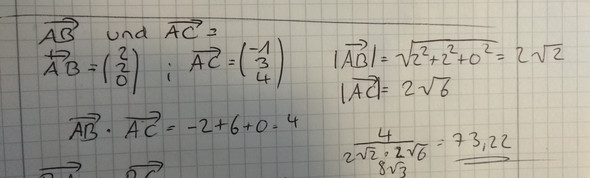 AB und AC =
AB = (2 2 0) ; AC = (-1 3 4)
|AB| = √2²+2²+0² = 2√2
|AC| = 2√6
AB · AC = -2+6+0 = 4
4 / 2√2 · 2√6 = 73,22
8√3